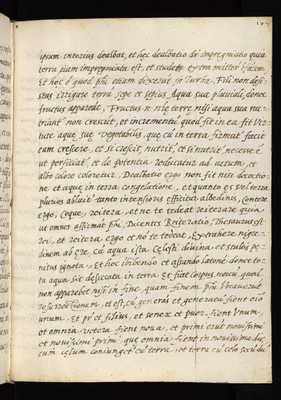 ipsum interius dealbat, et hęc dealbatio dr̃ impręgnatio quia
terra siam impręgnata est, et studeas
Et hoc ẽ quod phi etiam dixerunt in Turba. Fili non desi
stas irrigare terrã sępe et sępius Aqua sua pluuiali donec
fructus appareãt. Fructus n. nisi terrę nisi aqua sua nu
triant non crescit, et incrementũ quod fit in ea fit Vir
tute aquę suę vegetabilis, quę cũ in terra firmat facit
eam crescere, et si crescit nutrit, et si nutrit necesse ẽ
ut perficiat, et de potentia reducatur ad actum, et
albo colore coloretur. Dealbatio ergo non fit nisi decoctio
ne et aquę in terra congelatione, et quanto
plurics albat tanto intensioris efficitur albedinis. Contere
ergo, Coque, reitera, et ne te tedeat reiterare quia,
ut omnes affirmãt phi, Dicentes Reiteratio Thesaurus est
rei, at reitera ergo et no te tedeat. Expandere nigre
dinem ab ęre cũ aqua ista Cęlesti diuina, et stultis pe
nitus ignota, Et hoc ibibendo et assando latonẽ donec to
ta aqua sit desiccata in terra. Et fiat Corpus nouũ quod
non apparebit nisi in fine, quam finem phi Vocauerũt
resurrectionem, et est, cũ generãs et generatũ fient oio
unum. Et pr̃ et filius, et senex et puer fient Vnum,
et omnia Vetera fient noua, et primi erũt nouissimi
et nouissimi primi, quę omnia fient in nouissimo die,
cum cęlum coniunget cũ terra, et terra cũ cęlo